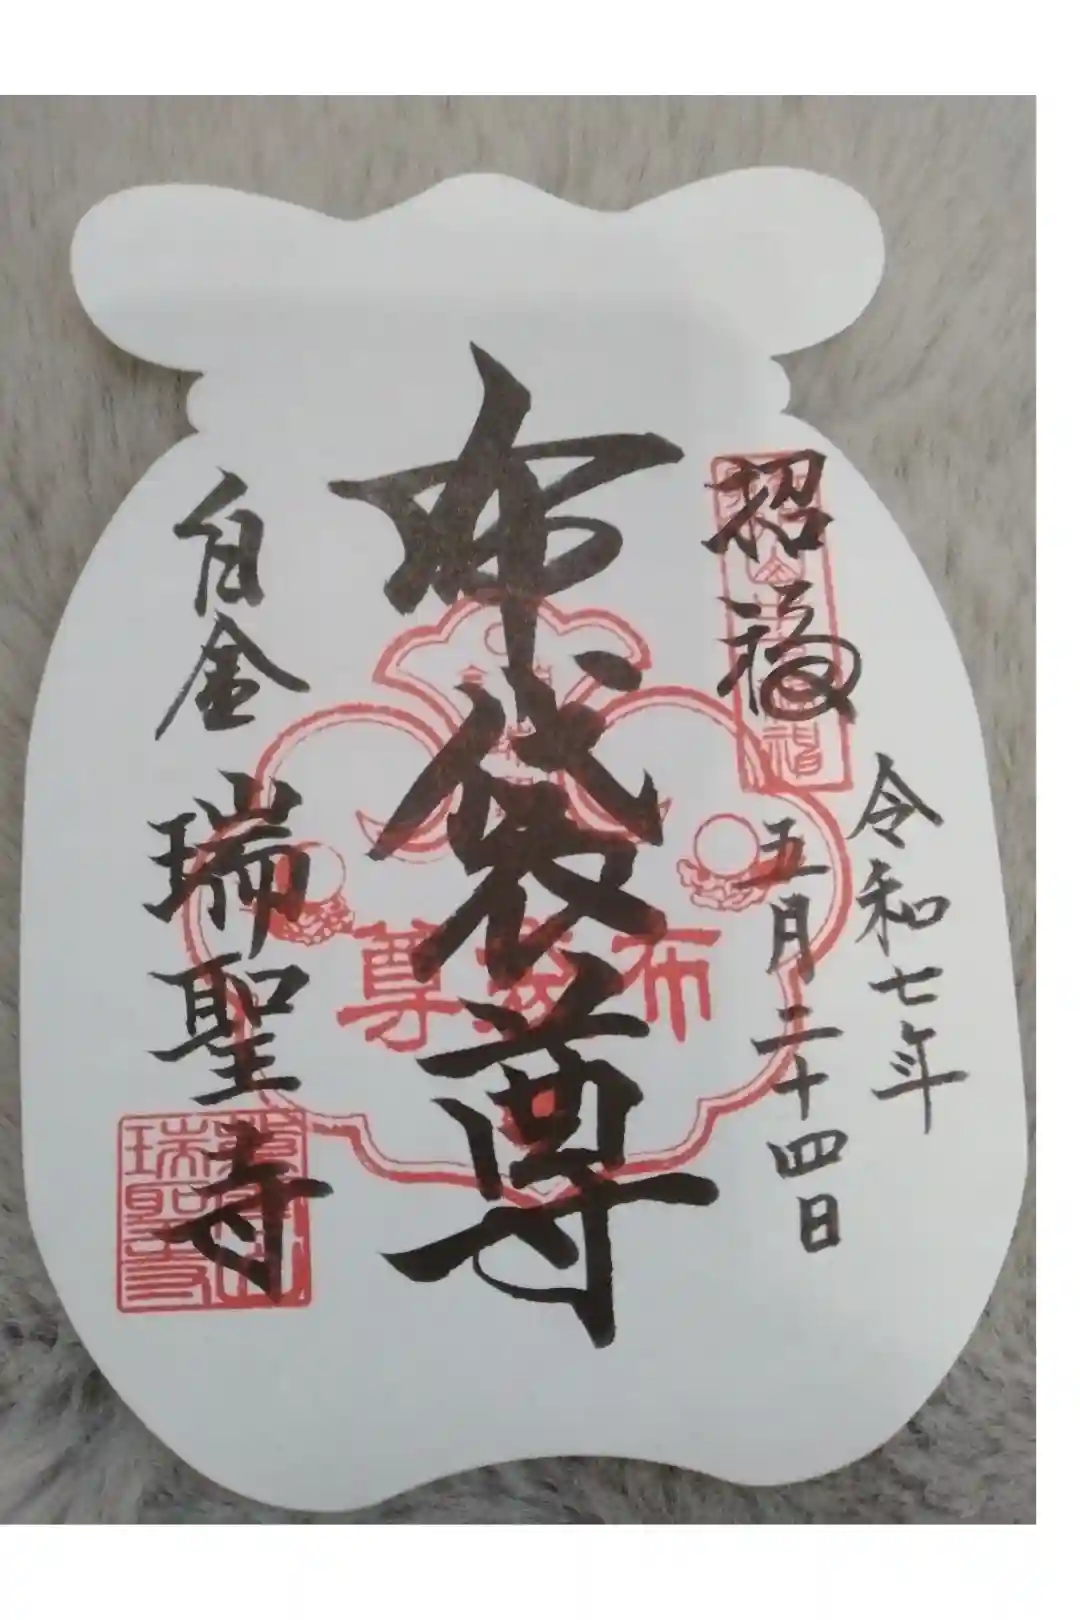 招福
令和七年
五月二十四日
布袋尊
布袋尊
白金 瑞聖寺
瑞聖寺